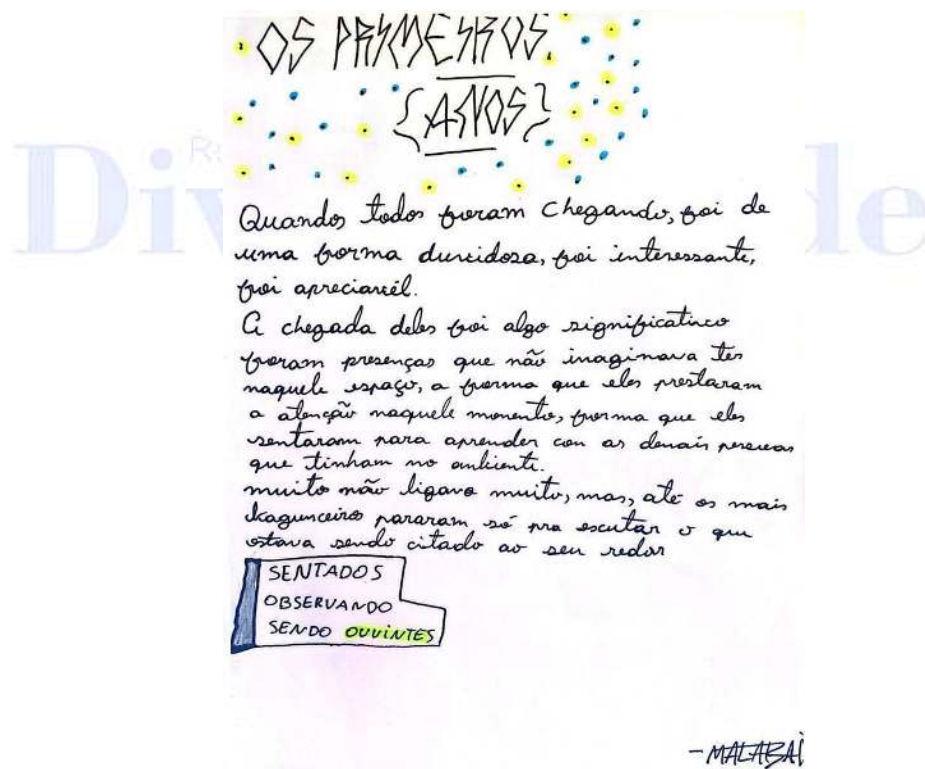 OS PRIMEIROS
{ANOS}
Quandos todos foram chegando, foi de
uma forma duvidosa, foi interessante,
foi apreciavél.
A chegada deles foi algo significativo
foram presenças que não imaginava ter
naquele espaço, a forma que eles prestaram
a atenção naquele momento, forma que eles
sentaram para aprender con as demais pessoas
que tinham no ambiente.
muito não ligava muito, mas, até os mais
bagunceiros pararam só pra escutar o que
estava sendo citado ao seu redor
SENTADOS
OBSERVANDO
SENDO OUVINTES
-MALABAI